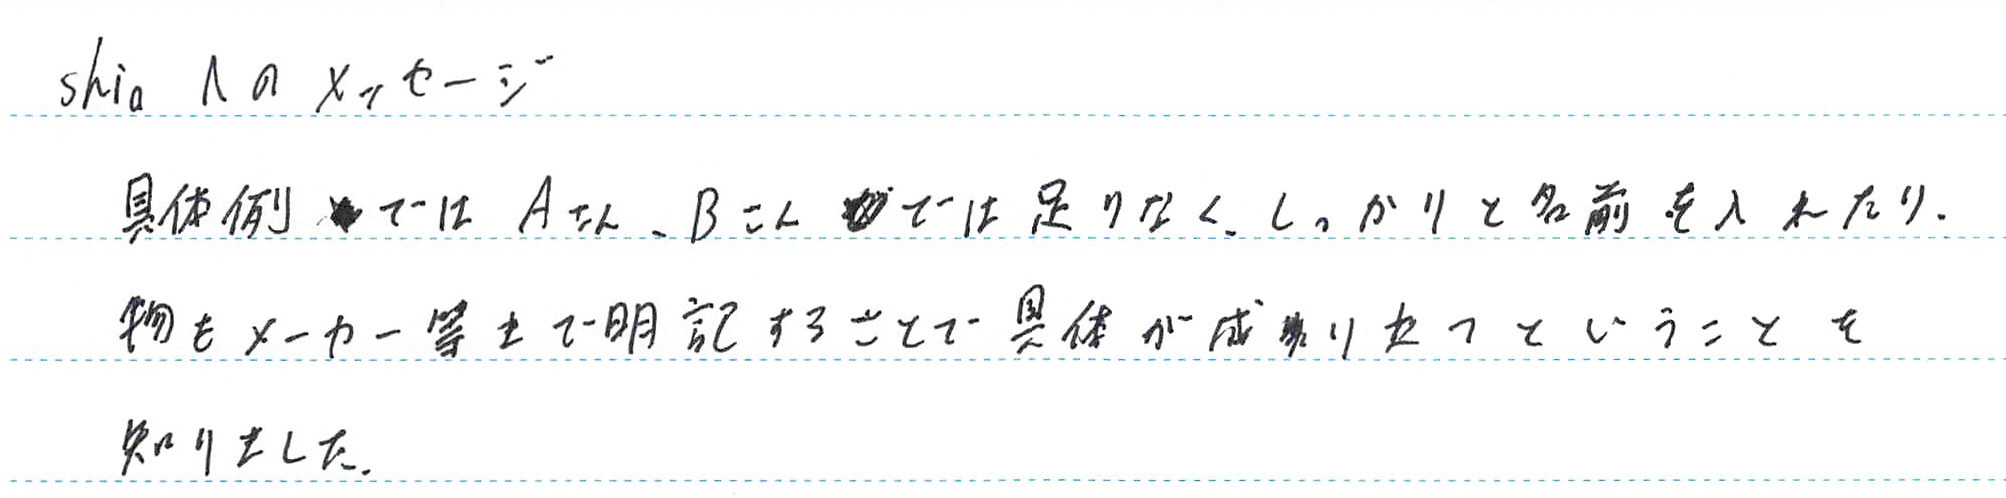 shia へのメッセージ
具体例では Aさん、Bさんでは足りなく、しっかりと名前を入れたり、
物もメーカー等まで明記することで具体が成りたつということを
知りました。